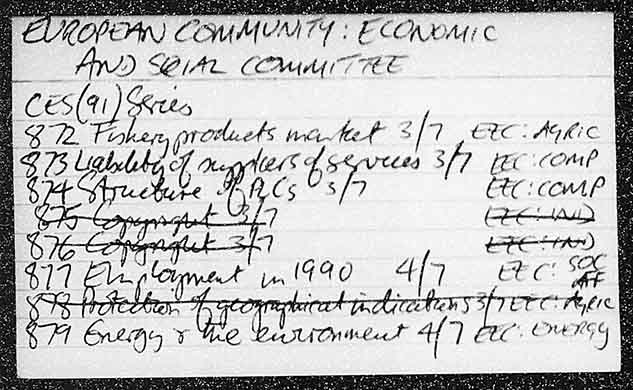 EUROPEAN COMMUNITY: ECONOMIC
AND SOCIAL COMMITTEE
CES(91) Series
872 Fishery products market 3/7 EEC: AGRIC
873 Liability of suppliers of services 3/7 EEC: COMP
874 Structure of PLCs 3/7 EEC: COMP
875 Copyright 3/7 EEC: IND
876 Copyright 3/7 EEC: IND
877 Employment in 1990 4/7 EEC: SOC AFF
878 Protection of geographical indications 3/7 EEC: AGRIC
879 Energy & the environment 4/7 EEC: ENERGY